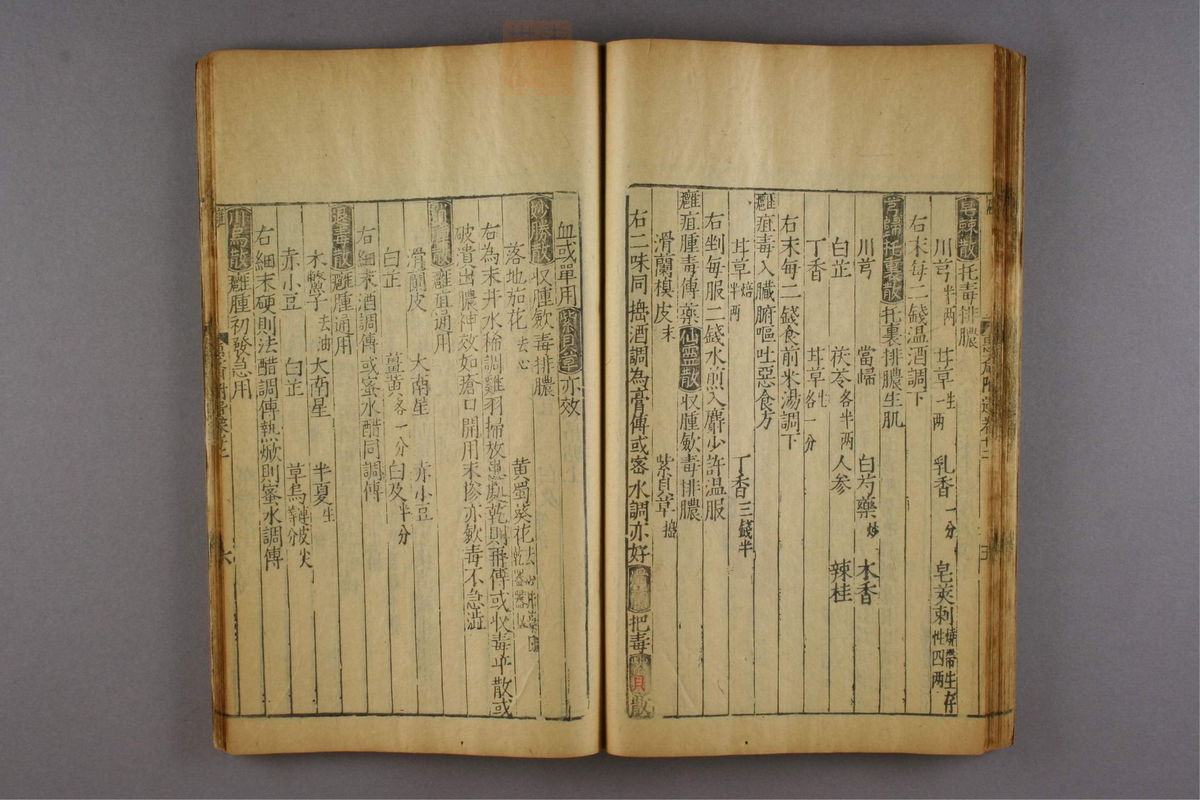 皂莢散托毒排膿
川芎半兩 甘草生一兩 乳香一分 皂莢刺燒帶生存性四兩
右末每二錢温酒調下
芎歸托裏散托裏排膿生肌
川芎 當歸 白芍藥炒 木香
白芷 茯苓各半兩 人參 辣桂
丁香 甘草生各一分
右末每二錢食前米湯調下
癰疽毒入臟腑嘔吐惡食方
甘草焙半兩 丁香三錢半
右剉每服二錢水煎入麝少許温服
癰疽腫毒傅藥仙靈散收腫斂毒排膿
滑蘭模皮末 紫貝草搗
右二味同搗酒調為膏傅或密水調亦好 把毒 貝散
血或單用紫貝草亦效
妙勝散收腫斂毒排膿
落地茄花去心 黄蜀葵花去心
右為末井水稀調雞羽掃放患處乾則再傅或收毒平散或
破潰出膿神效如瘡口開用末摻亦斂毒不急澁
癰疽通用
滑蘭皮 大南星 赤小豆
白芷 薑黄各一分 白及半分
右細末酒調傅或蜜水醋同調傅
退毒散癰腫通用
木鱉子去油 大南星 半夏生
赤小豆 白芷 草烏連皮尖
右細末硬則法醋調傅熱焮則蜜水調傅
川烏散癰腫初發急用